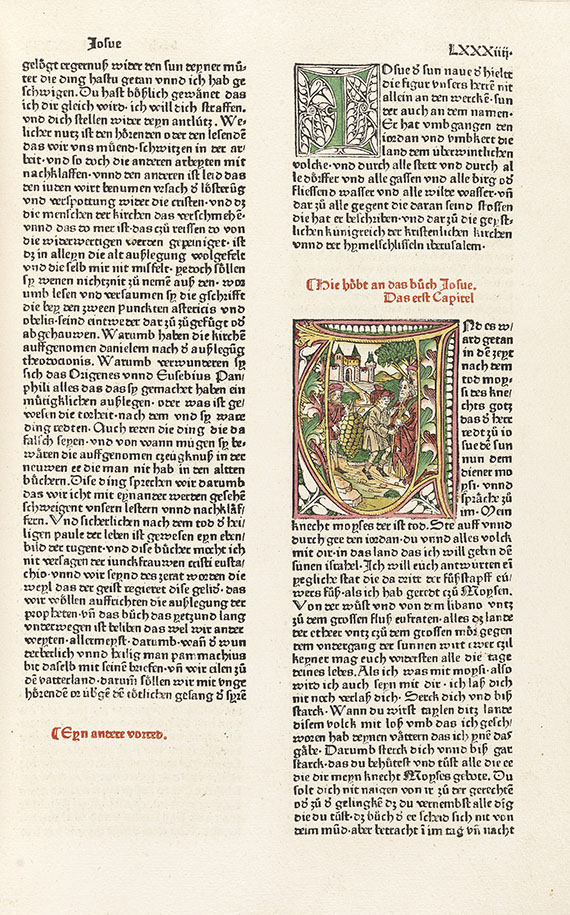 Josue
LXXXiiij.
gelögt ergernuß wider den sun deyner mů/
ter die ding hastu getan vnnd ich hab ge
schwigen. Du hast bößlich gewänet das
ich dir gleich wird. ich will dich straffen.
vnd dich stellen wider deyn antlütz. We/
licher nutz ist den hörenden oder den lesenden
das wir vns müend. schwitzen in der ar/
beit. vnd so doch die anderen arbeyten mit
nachklaffen. vnnd den anderen ist leid das
den iuden wirt benumen vrsach d' lösterūg
vnd verspottung wider die cristen. vnd dz
die menschen der kirchen das verschmehē.
vnnd das so mer ist. das czů reissen so von
die widerwertigen werden gepeiniget. ist
dz in alleyn die alt außlegung wolgefelt
vnd die selb mir nit misfelt. yedoch söllen
sy wenen nichtznit zů nemē auß den. wo
umb lesen vnd versaumen sy die gschrifft
die bey den zween punckten astericis vnd
obelis. seind eintweder dar zů zůgefügt od'
abgehauwen. Warumb haben die kirchē
auffgenomen danielem nach d' außlegūg
theodocionis. Warumb verwunderen sy
sich das Origenes vnnd Eusebius Pan/
phili alles das das sy gemachet haben ein
mütigklichen außlegen. oder was ist ge/
wesen die torheit. nach dem vnd sy ware
ding redten. Auch reden die ding die da
falsch seyen. vnd von wann mügen sy be/
wären die auffgenomen czeügknuß in der
neuwen ee die man nit hab in den altten
büchern. Dise ding sprechen wir darumb
das wir icht mit eynander werden gesehē
schweigent vnsern lestern vnnd nachkläf/
fern. Vnd sicherlichen nach dem tod d' hei/
ligen paule der leben ist gewesen eyn eben/
bild der tugent. vnd dise bücher mocht ich
nit versagen der iunckfrauwen cristi eusta/
chio. vnnd wir seynd des zerat worden die
weyl das der geist regieret dise gelid. das
wir wöllen auffrichten die außlegung der
propheten. vn̄ das bůch das yetzund lang
vnderwegen ist beliben das wel wir ander
weyten. allermeyst. darumb. wan̄ d' wun
derberlich vnnd heilig man pammachius
bit daselb mit seinē briefen. vn̄ wir eilen zů
dē vatterland. darum̄ söllen wir mit vnge
hörendē or übgē dē tödlichen gesang d' syrē
Eyn andere vorred.
Josue d' sun naue d' hielte
die figur vnsers herrē nit
allein an den werckē. sun
der auch an dem namen.
Er hat vmbgangen den
iordan vnd vmbkert die
land dem überwintlichen
volcke. vnd durch alle stett vnd durch al
le dörffer vnd alle gassen vnd alle birg od'
fliessend wasser vnd alle wilde wasser. vn̄
dar zů alle gegent die daran seind stossen
die hat er beschriben. vnd dar zů die geyst/
lichen künigreich der kristenlichen kirchen
vnnd der hymelschlisseln iherusalem.
Hie höbt an das bůch Josue.
Das erst Capitel
Und es w/
ard getan
in dē zeyt
nach dem
tod moy/
si des kne/
chts gotz
das d' herr
redt zů io
sue dē sun
nun dem
diener mo
ysi. vnnd
sprāche zů
im. Mein
knecht moyses der ist tod. Stee auff vnnd
durch gee den iordan. du vnnd alles volck
mit dir. in das land das ich will geben dē
sünen israhel. Ich will euch antwurten eī
yegliche stat die da tritt der fůßstapff eü/
wers fůß. als ich hab geredt czů Moysen.
Von der wůst vnd von dem libano vntz
zů dem grossen fluß eufraten. alles dz lande
der etheer vntz czů dem grossen mör gegen
dem vndergang der sunnen wirt ewer czil
keyner mag euch widersten alle die tage
deines lebes. Als ich was mit moysi. also
wird ich auch seyn mit dir. ich laß dich
nit noch verlaß dich. Sterck dich vnd biß
starck. Wann du wirst taylen ditz lande
disem volck mit loß vmb das ich gesch/
woren hab deynen vättern das ich ynē das
gäbe. Darumb sterck dich vnnd biß gar
starck. das du behütest vnd tüst alle die ee
die dir meyn knecht Moyses gebote. Du
solt dich nit naigen von ir zů der gerechtē
od' zů d' gelingkē dz du vernembst alle dīg
die du tůst. dz bůch d' ee scheid sich nit von
deim mūd. aber betracht ī im tag vn̄ nacht